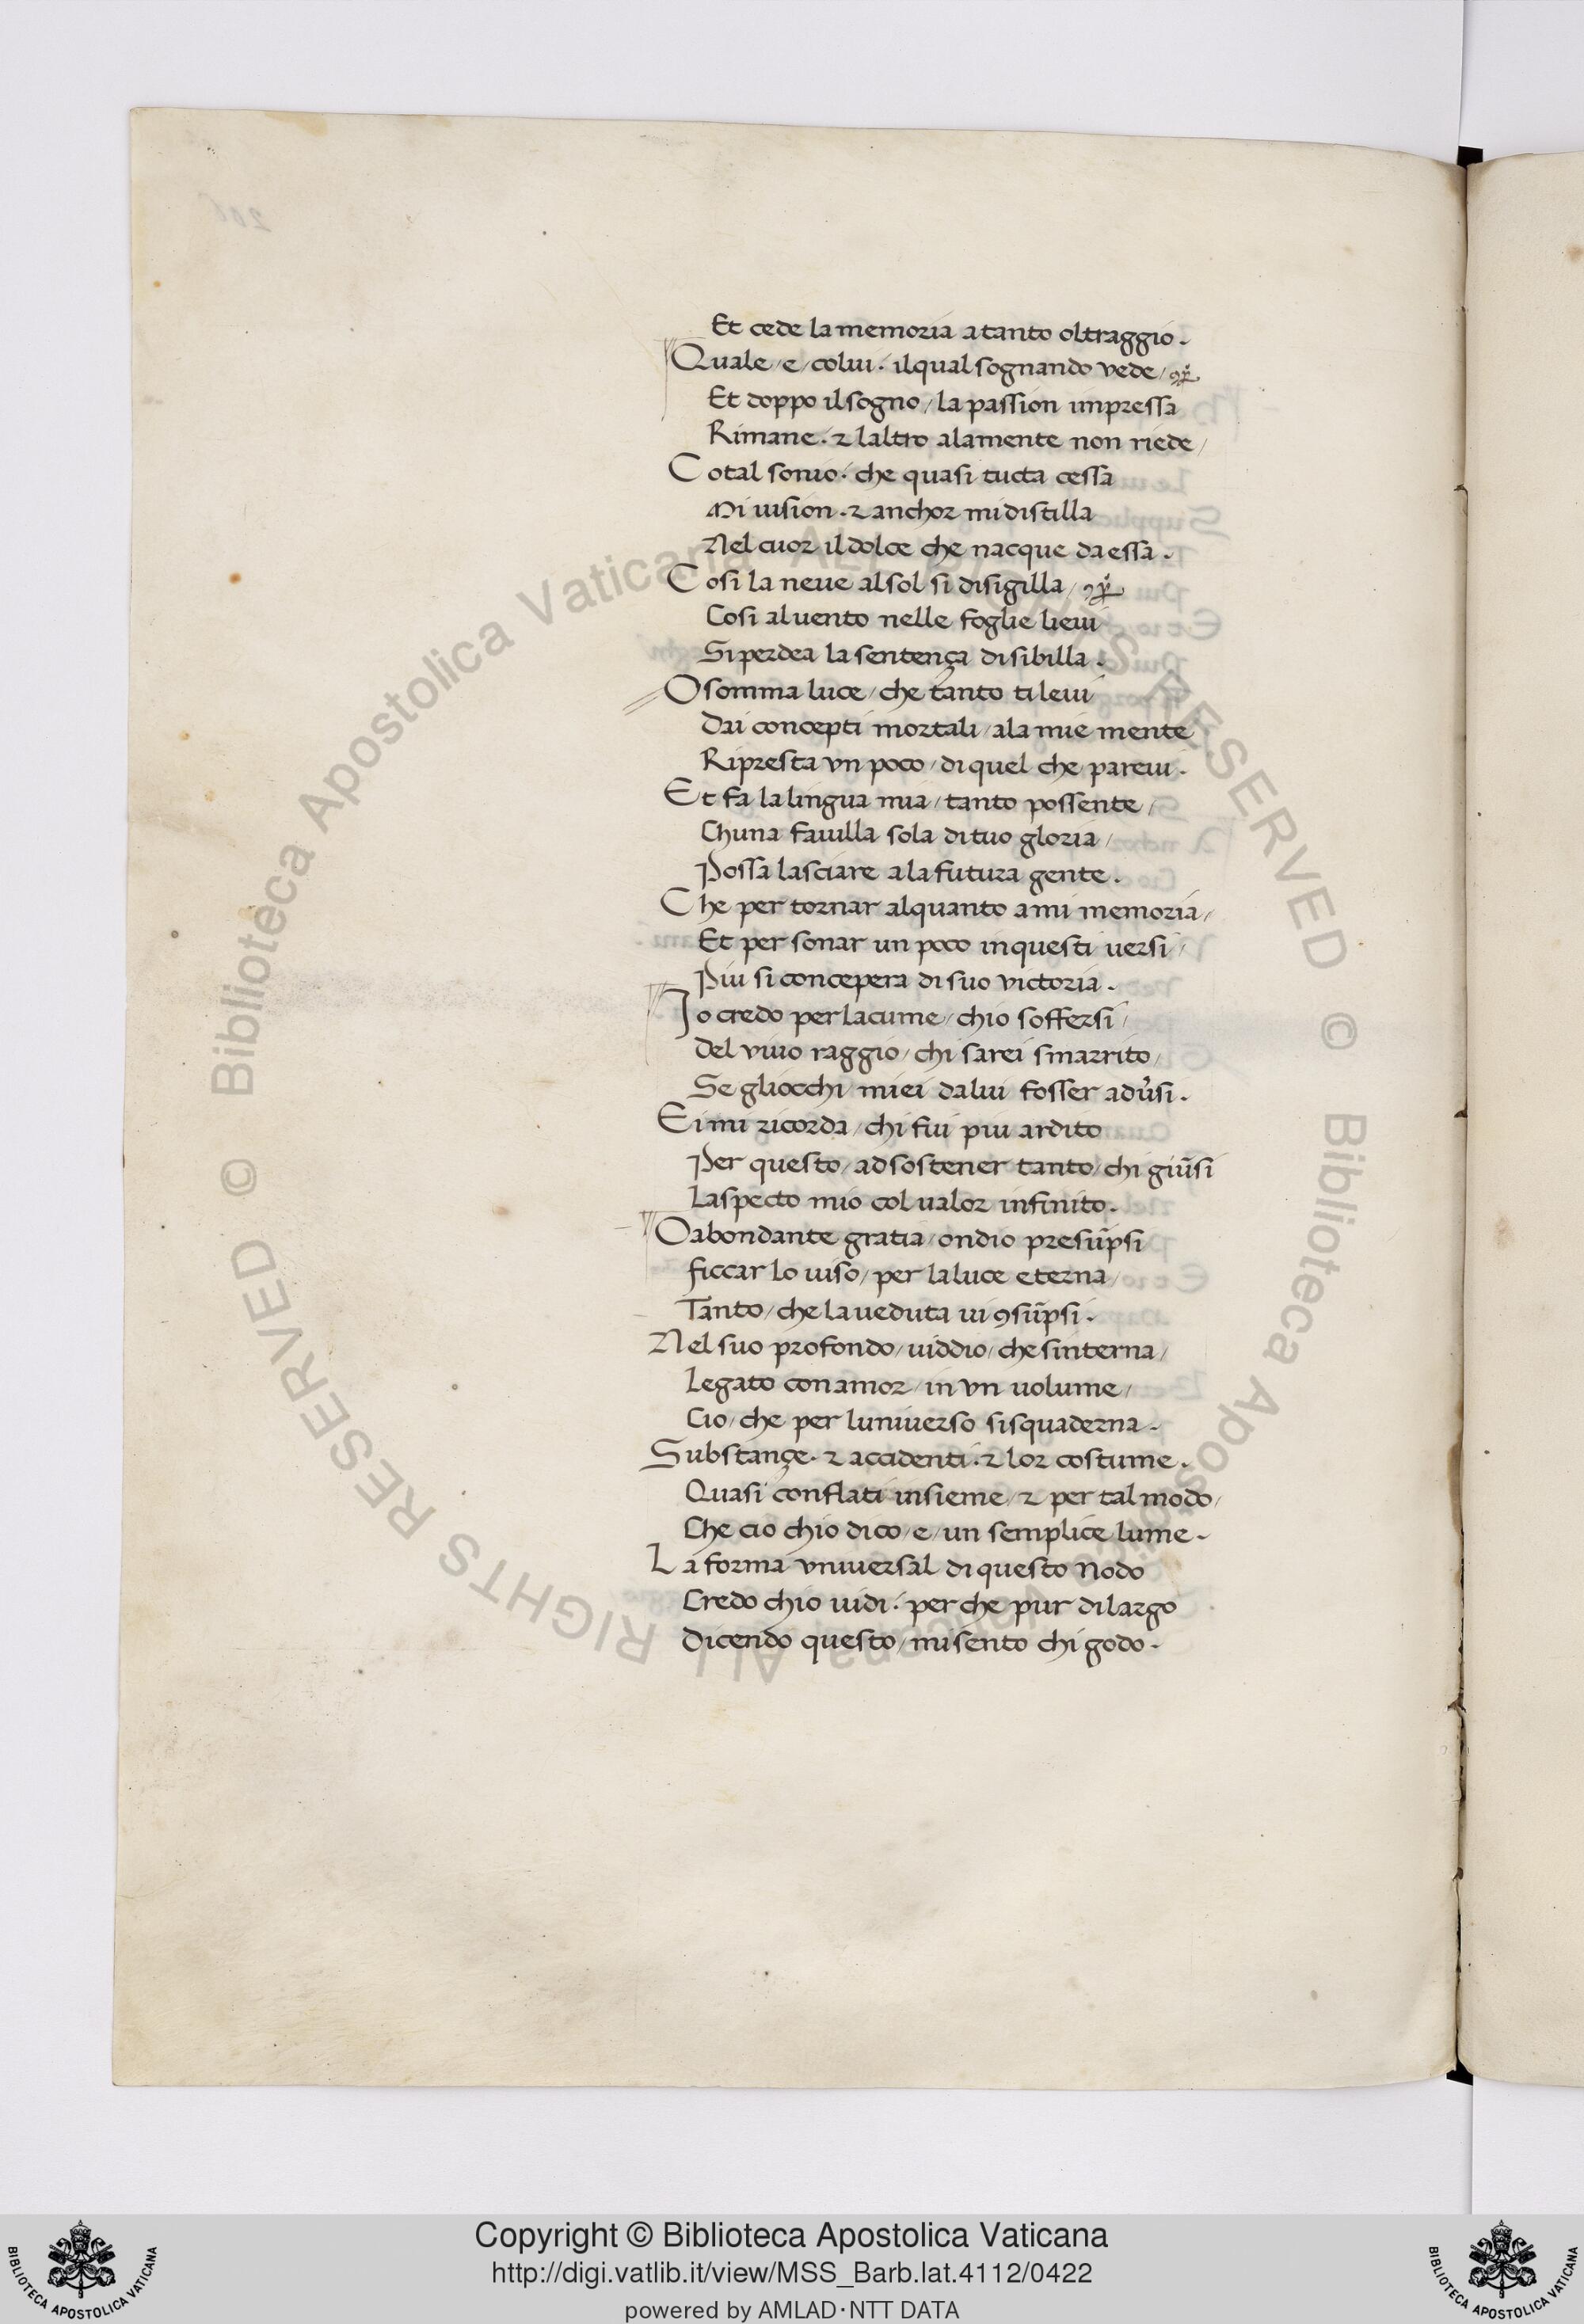 Et cede la memoria a tanto oltraggio.
Quale/e/colui. ilqual sognando vede/
Et doppo il sogno/la passion impressa
Rimane. & laltro alamente non riede/
Cotal sonio. che quasi tucta cessa
Mi uision. & anchor mi distilla
Nel cuor il dolce che nacque da essa.
Cosi la neue al sol si disigilla/
Cosi al uento nelle foglie lieui
Si perdea la sentença di sibilla.
O somma luce/che tanto ti leui
Dai concepti mortali/ala mie mente
Ripresta vn poco/di quel che pareui.
Et fa la lingua mia/tanto possente/
Chuna fauilla sola di tuo gloria/
Possa lasciare a la futura gente.
Che per tornar alquanto a mi memoria/
Et per sonar un poco in questi uersi/
Piu si concepera di suo victoria.
Io credo per lacume/chio soffersi/
Del viuo raggio/chi sarei smarrito/
Se gliocchi miei da lui fosser aduersi.
Ei mi ricorda/chi fui piu ardito
Per questo/ad sostener tanto/chi giũsi
Laspecto mio col ualor infinito.
O abondante gratia/ondio presũpsi
ficcar lo uiso/per la luce eterna/
Tanto/che la ueduta ui ꝯsũpsi.
Nel suo profondo/uiddio/che sinterna/
Legato con amor/in vn uolume/
Cio/che per luniuerso si squaderna.
Substançe. & accidenti. & lor costume.
Quasi conflati insieme/& per tal modo/
Che cio chio dico/e/un semplice lume.
La forma vniuersal di questo Nodo
Credo chio uidi. perche pur di largo
Dicendo questo/mi sento chi godo.
Copyright © Biblioteca Apostolica Vaticana
http://digi.vatlib.it/view/MSS_Barb.lat.4112/0422
powered by AMLAD·NTT DATA